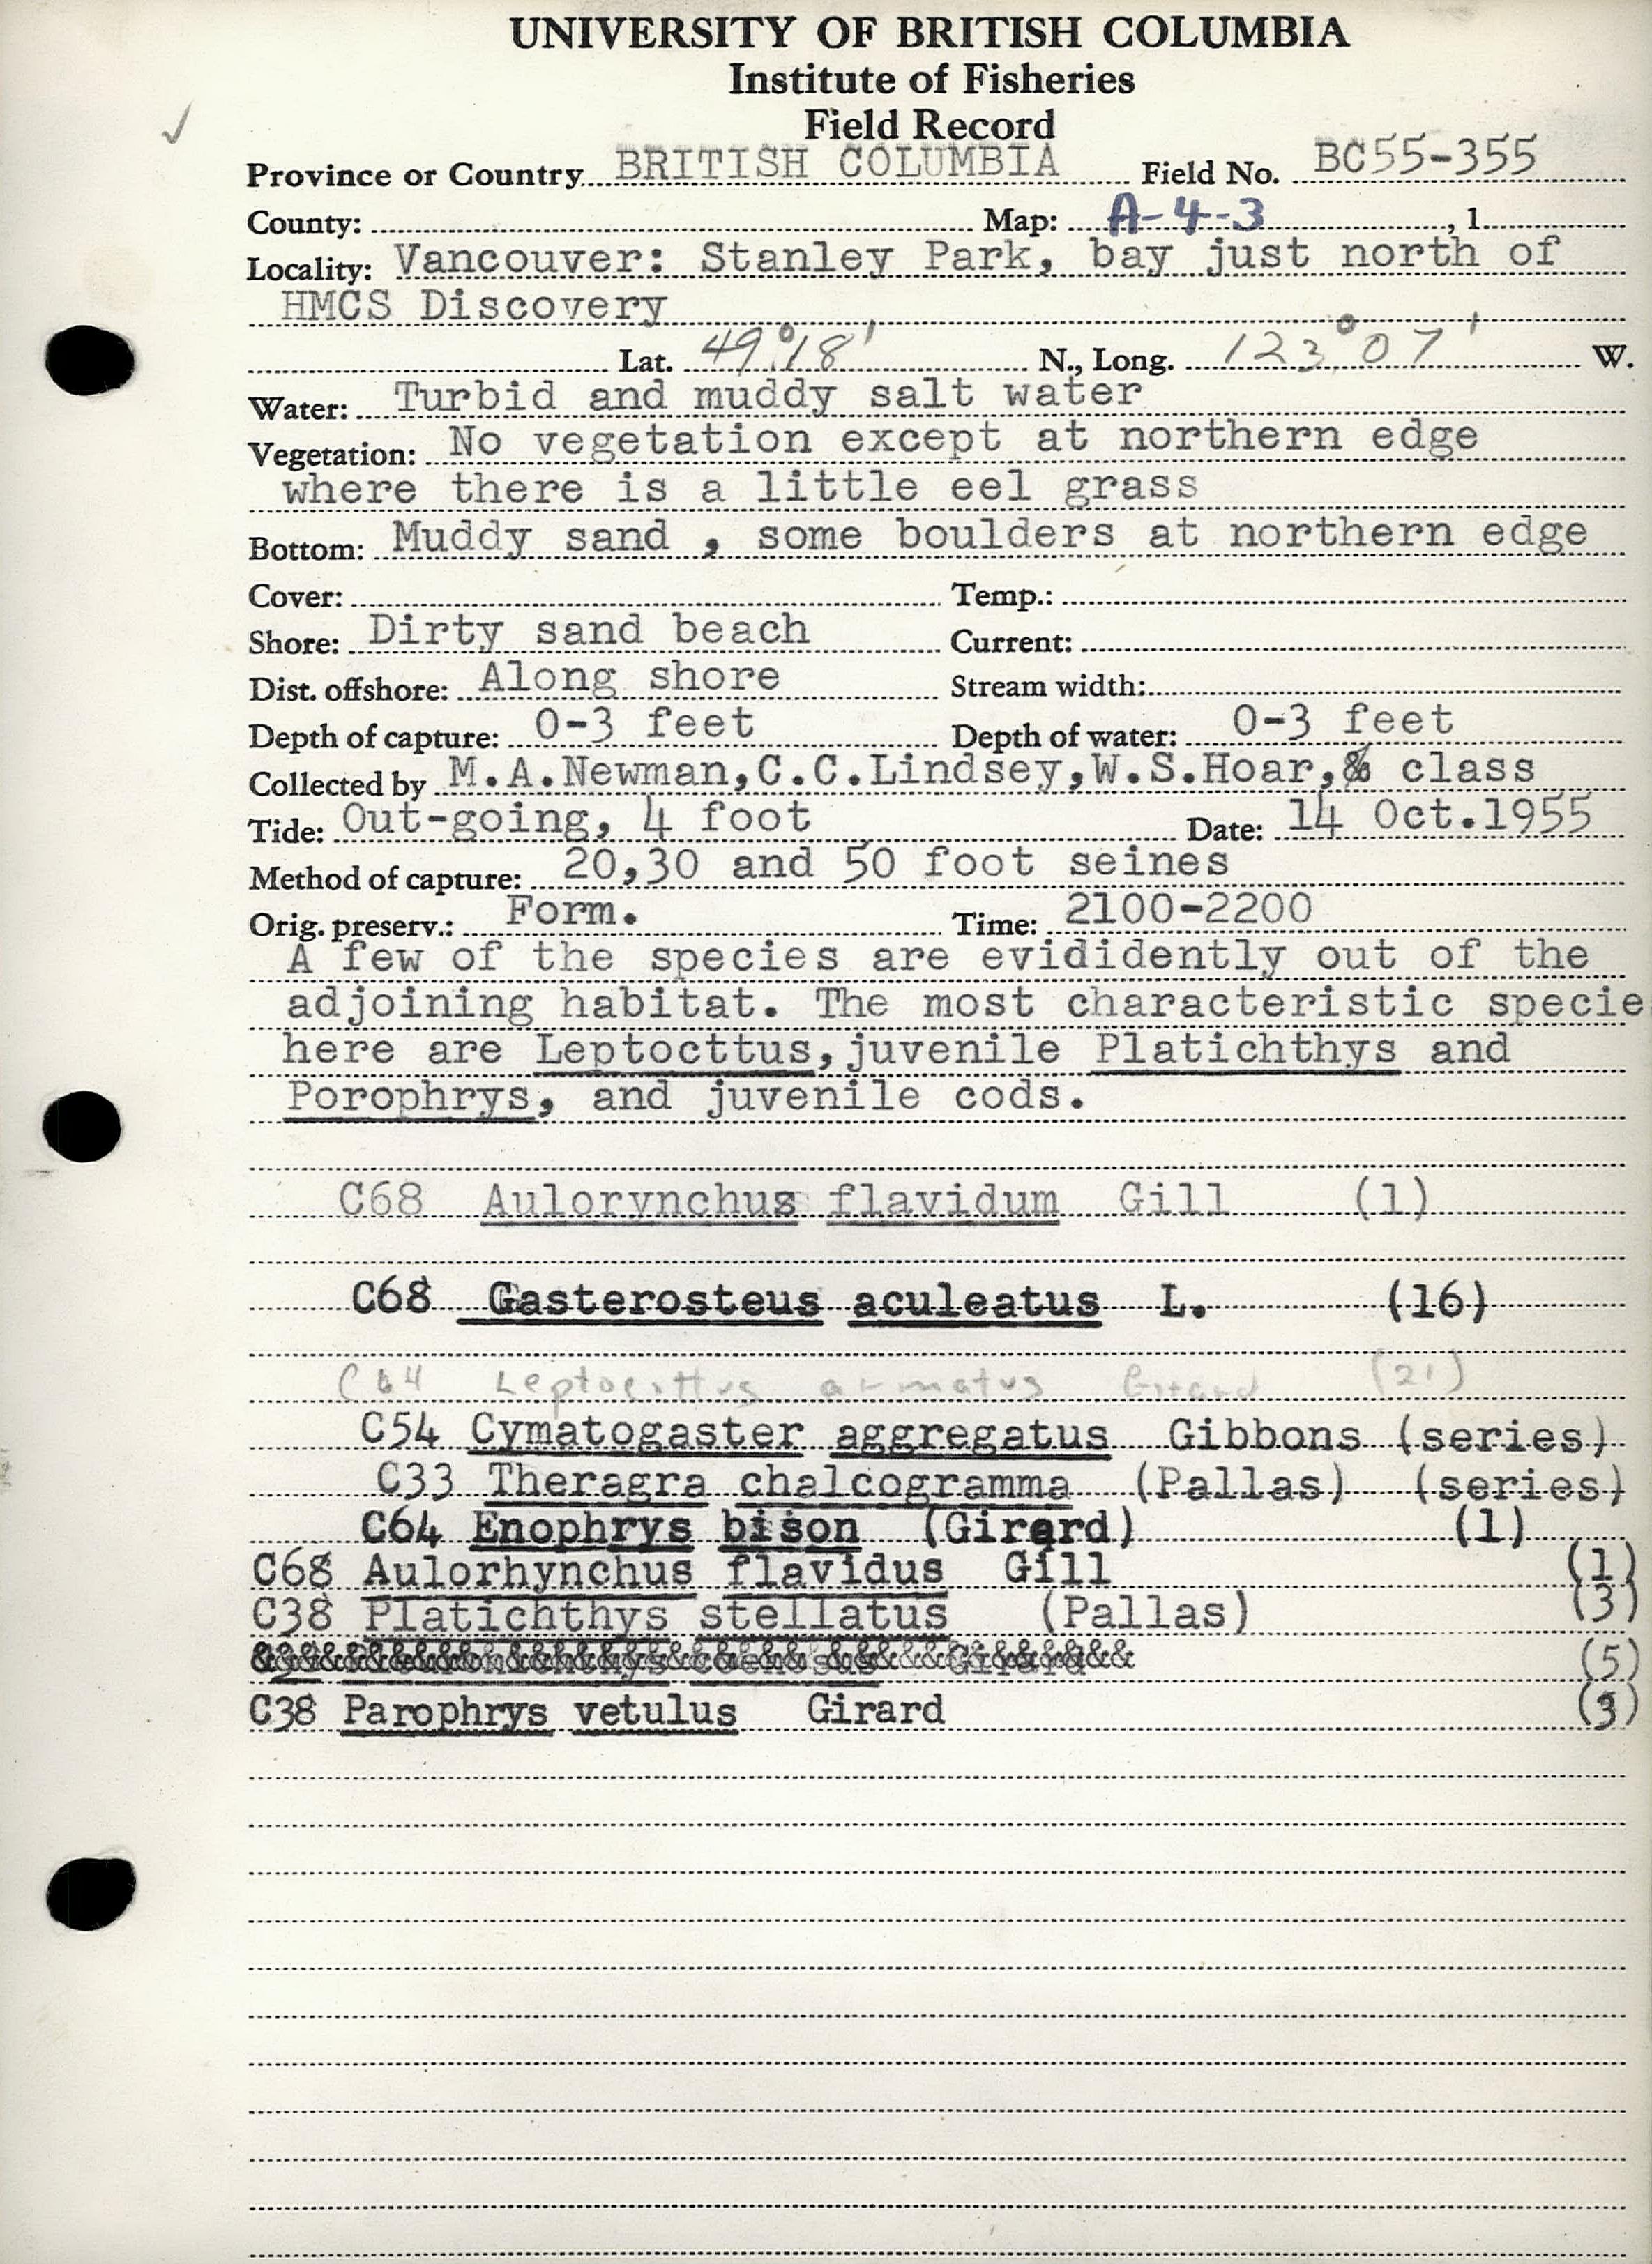 UNIVERSITY OF BRITISH COLUMBIA
Institute of Fisheries
Field Record
Province or Country BRITISH COLUMBIA Field No. BC55-355
County: Map: A-4-3 , 1
Locality: Vancouver: Stanley Park, bay just north of
HMCS Discovery
Lat. 49°18' N., Long. 123°07' W.
Water: Turbid and muddy salt water
Vegetation: No vegetation except at northern edge
where there is a little eel grass
Bottom: Muddy sand , some boulders at northern edge
Cover: Temp.:
Shore: Dirty sand beach Current:
Dist. offshore: Along shore Stream width:
Depth of capture: 0-3 feet Depth of water: 0-3 feet
Collected by M.A.Newman,C.C.Lindsey,W.S.Hoar,& class
Tide: Out-going, 4 foot Date: 14 Oct.1955
Method of capture: 20,30 and 50 foot seines
Orig. preserv.: Form. Time: 2100-2200
A few of the species are evididently out of the
adjoining habitat. The most characteristic specie
here are Leptocttus,juvenile Platichthys and
Porophrys, and juvenile cods.
C68 Aulorynchus flavidum Gill (1)
C68 Gasterosteus aculeatus L. (16)
C64 armatus Girard (21)
C54 Cymatogaster aggregatus Gibbons (series)
C33 Theragra chalcogramma (Pallas) (series)
C64 Enophrys bison (Girard) (1)
C68 Aulorhynchus flavidus Gill (1)
C38 Platichthys stellatus (Pallas) (3)
(5)
C38 Parophrys vetulus Girard (3)